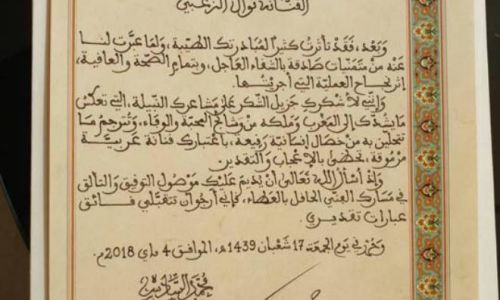 الفنانة نوال الزغبي
وبعد، فقد تأثرت كثيرا لمبادرتك الطيبة، ولما عبرت لنا
عنه من متمنيات صادقة بالشفاء العاجل، وبتمام الصحة والعافية،
إثر نجاح العملية التي أجريتها.
وإنني لأشكرك جزيل الشكر على مشاعرك النبيلة، التي تعكس
ما يشدك إلى المغرب وملكه من وشائج المحبة والوفاء، وتترجم ما
تتحلين به من خصال إنسانية رفيعة، باعتبارك فنانة عربية
مرموقة، تحظى بالإعجاب والتقدير.
وإذ أسأل الله تعالى أن يديم عليك موصول التوفيق والتألق
في مسارك الفني الحافل بالعطاء، فإني أرجو أن تتقبلي فائق
عبارات تقديري.
وحرر في يوم الجمعة 17 شعبان 1439ه، الموافق 4 ماي 2018م.
محمد السادس